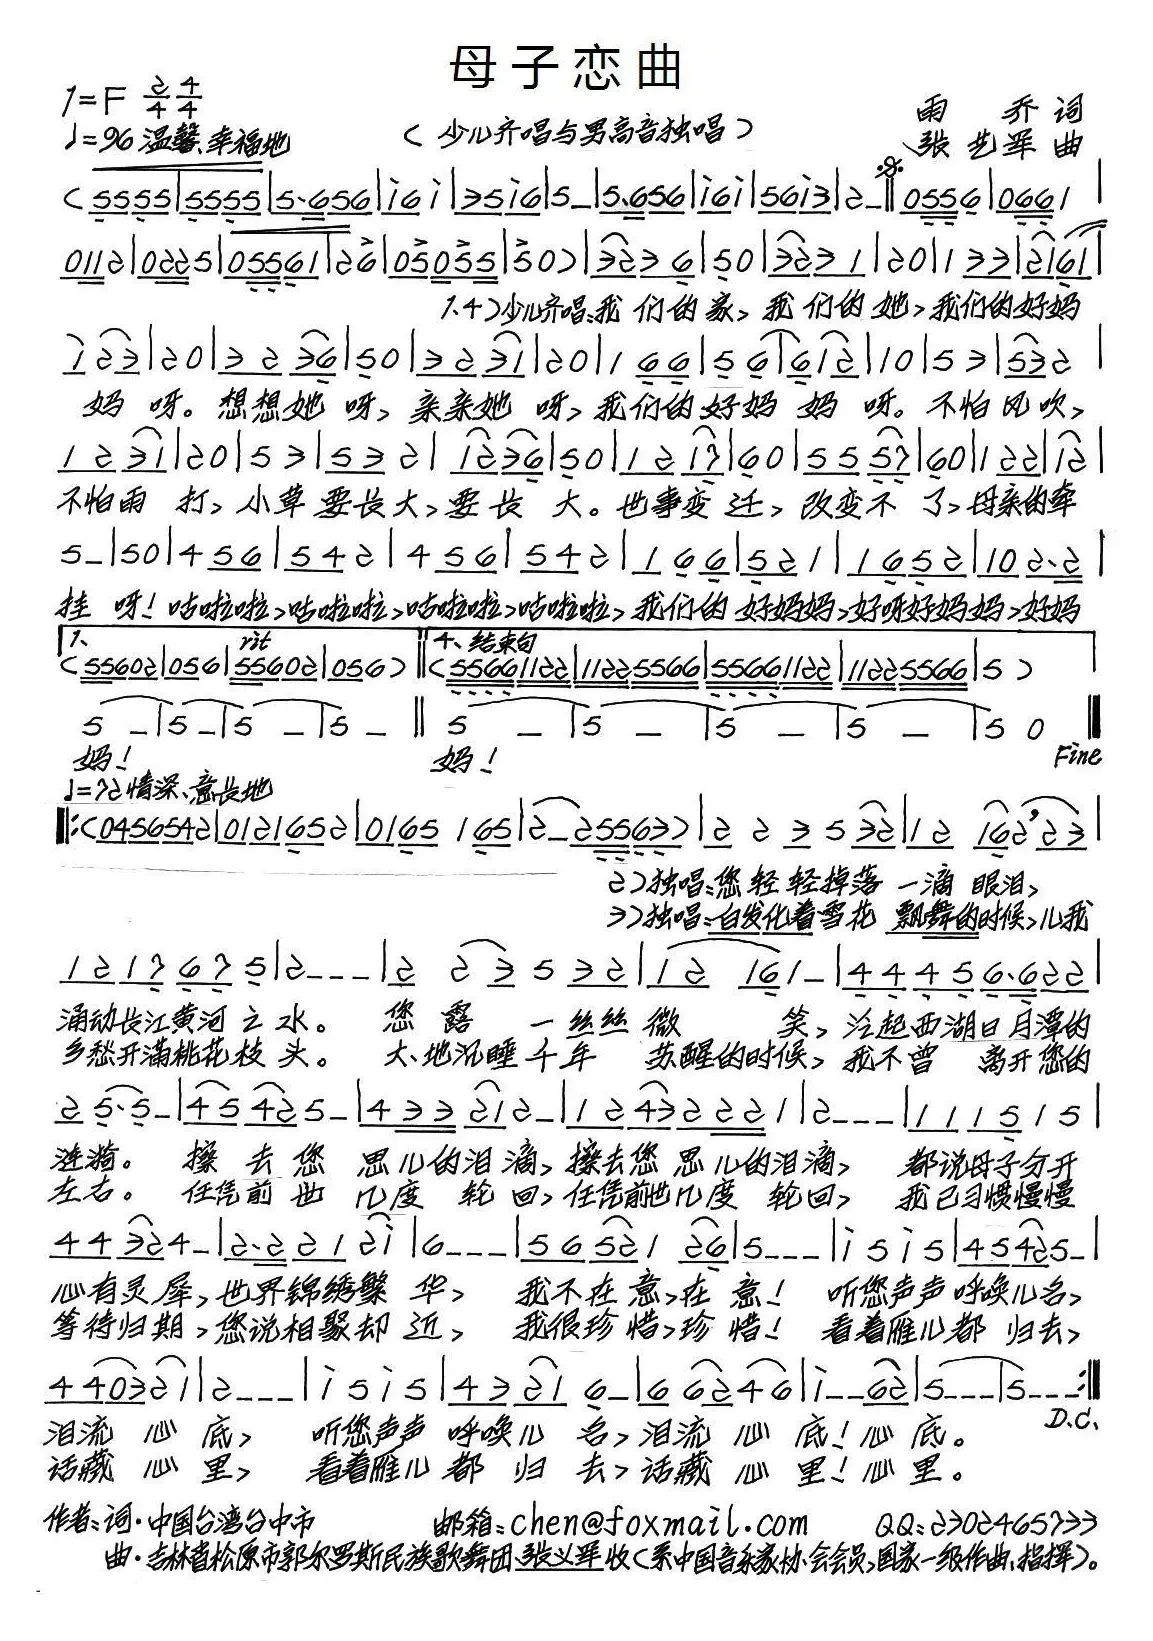 母子恋曲
1=F 2/4 4/4
雨 乔 词
♩=96 温馨、幸福地
(少儿齐唱与男高音独唱)
张艺军 曲
(5555|5555|5·656|i6i|35i6|5–|5·656|i6i|56i3|2–‖0556|0661|
0112|0225|05561|26|05055|50)|3236|50|3231|20|133|2161|
1.4)少儿齐唱:我们的家,我们的她,我们的好妈
123|20|3236|50|3231|20|166|56|612|10|53|532|
妈呀。想想她呀,亲亲她呀,我们的好妈妈呀。不怕风吹,
1231|20|53|532|1236|50|1217|60|5557|60|122|12|
不怕雨打,小草要长大,要长大。世事变迁,改变不了,母亲的牵
5–|50|456|542|456|542|166|521|1652|102·2|
挂呀!咕啦啦,咕啦啦,咕啦啦,咕啦啦,我们的好妈妈,好呀好妈妈,好妈
1.
rit
4.结束句
(55602|056|55602|056)‖(55661122|11225566|55661122|11225566|5)
5–|5–|5–|5–‖5–|5–|5–|5–|50‖
妈! 妈!
Fine
♩=72情深、意长地
‖:(0456542|0121652|0165 165|2–25563)|223532|12 162'23|
2)独唱:您轻轻掉落一滴眼泪,
3)独唱:白发化着雪花飘舞的时候,儿我
1217675|2–––|223532|12 161–|44456·622|
涌动长江黄河之水。您露一丝丝微笑,泛起西湖日月潭的
乡愁开满桃花枝头。大地沉睡千年苏醒的时候,我不曾离开您的
25·5–|45425–|433212–|12432221|2–––|111515|
涟漪。擦去您思儿的泪滴,擦去您思儿的泪滴,都说母子分开
左右。任凭前世几度轮回,任凭前世几度轮回,我已习惯慢慢
44324–|2·2212i|6–––|56521 26|5–––|i5i5|45425–|
心有灵犀,世界锦绣繁华,我不在意,在意!听您声声呼唤儿名,
等待归期,您说相聚却近,我很珍惜,珍惜!看着雁儿都归去,
440321|2–––|i5i5|43216–|66246|i––62|5–––|5–––:‖
D.C.
泪流心底,听您声声呼唤儿名,泪流心底!心底。
话藏心里,看着雁儿都归去,话藏心里!心里。
作者:词·中国台湾台中市 邮箱:chen@foxmail.com QQ:2302465733
曲·吉林省松原市郭尔罗斯民族歌舞团张义军收(系中国音乐家协会会员,国家一级作曲、指挥)。